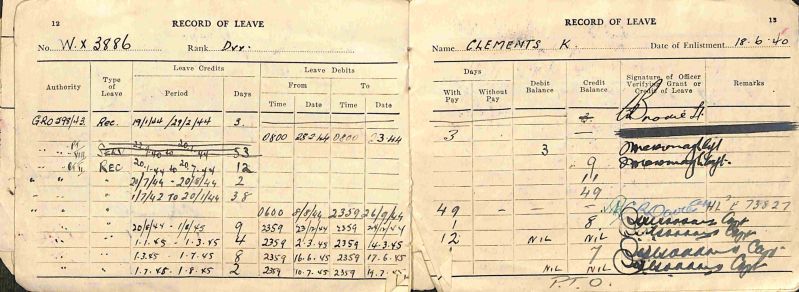 12
RECORD OF LEAVE
No. W.X 3886 Rank Dvr.
Leave Credits Leave Debits
Authority Type of Leave Period Days From To
Time Date Time Date
GRO 398/43 Rec. 19/1/44 / 29/2/44 3
0800 28.2.44 0800 .3.44
53
REC 20.1.44 to 20.7.44 12
" " 20/7/44 - 20/8/44 2
" " 1/7/42 to 20/1/44 38
0600 8/8/44 2359 26/9/44
" 20/8/44 - 1/1/45 9 2359 23/12/44 2359 24/12/44
" 1.1.45 - 1.3.45 4 2359 2.3.45 2359 14.3.45
" 1.3.45 - 1.7.45 8 2359 16.6.45 2359 17.6.45
" 1.7.45 - 1.8.45 2 2359 10.7.45 2359 19.7.45
RECORD OF LEAVE
13
Name CLEMENTS K. Date of Enlistment 18.6.40
Days
With Pay Without Pay Debit Balance Credit Balance Signature of Officer Verifying Grant or Credit of Leave Remarks
3 —
3
9
11
49
49 — — — 73827
1 8 Capt
12 NIL NIL Capt
" 7 Capt
NIL NIL Capt
P.T.O.